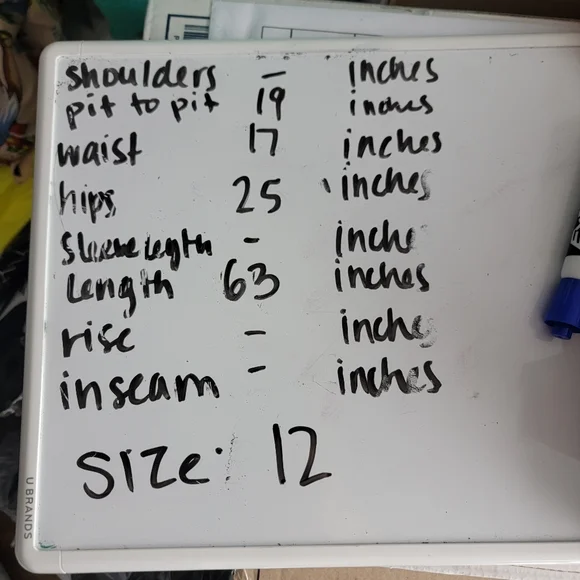 shoulders - inches
pit to pit 19 inches
waist 17 inches
hips 25 inches
Sleeve legth - inche
Length 63 inches
rise - inches
inseam - inches
SIZE: 12
U BRANDS